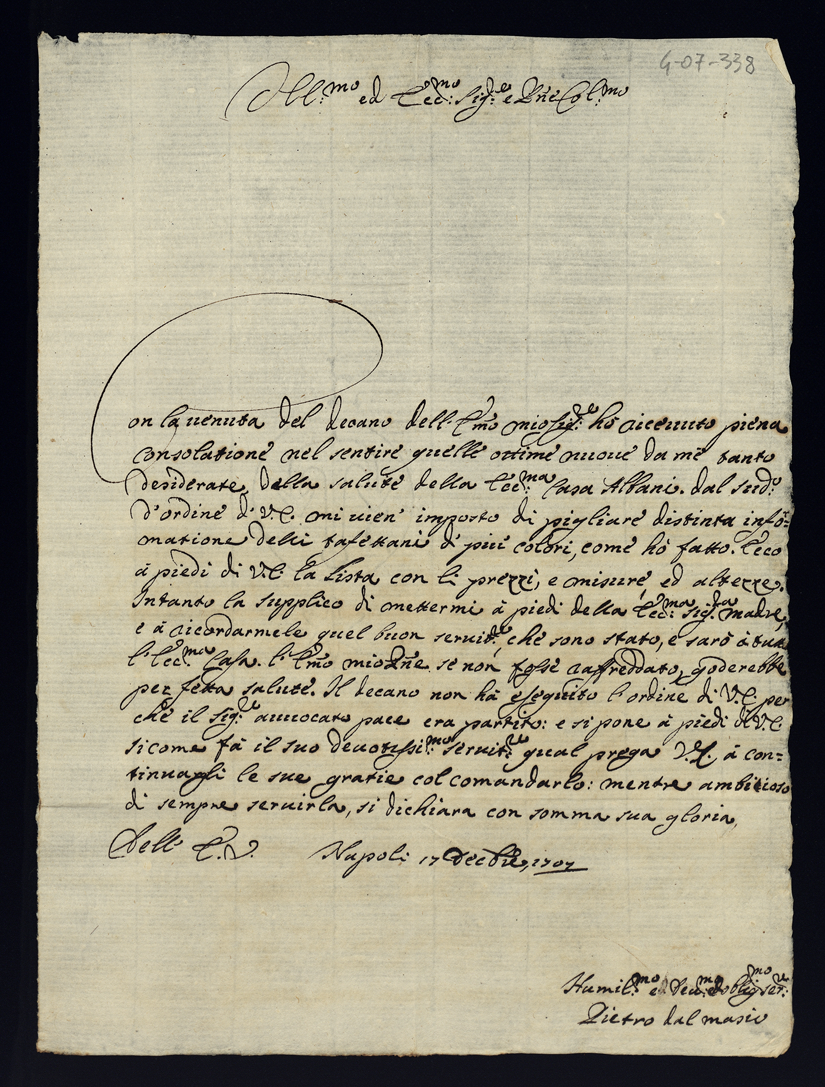 4-07-338
Ill.mo ed Ecc.mo Sig.re e Prne Col.mo
Con la venuta del decano dell'E.mo mio Sig.re hò ricevuto piena
consolatione nel sentire quelle ottime nuove da me tanto
desiderate della salute della Ecc.ma Casa Albani. dal sud.o
d'ordine di V.E. mi vien' imposto di pigliare distinta infor=
matione delli tafettani di più colori, come hò fatto. Ecco
à piedi di V.E. la lista con li prezzi, e misure, ed altezze.
Intanto la supplico di mettermi à piedi della Ecc.ma Sig.ra madre,
e à ricordarmele quel buon servit.re, che sono stato, e sarò à tutta
l'Ecc.ma Casa. l'E.mo mio Prne se non fosse raffreddato, goderebbe
perfetta salute. Il decano non hà eseguito l'ordine di V.E. per
che il sig.re avvocato pace era partito: e si pone à piedi di V.E.
sicome fà il suo devotissi.mo servit.re qual prega V.E. à con=
tinuagli le sue gratie col comandarlo: mentre ambitioso
di sempre servirla, si dichiara con somma sua gloria,
Dell' E.V. Napoli 17 Decbre, 1707
Humil.mo ed oblig.mo ser.re
Pietro dal masio